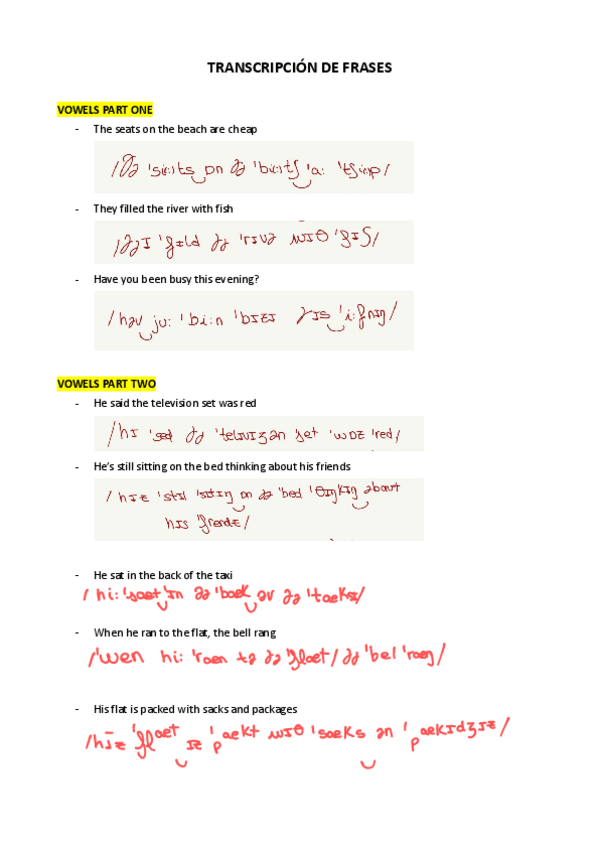 TRANSCRIPCIÓN DE FRASES
VOWELS PART ONE
- The seats on the beach are cheap
/ðə ˈsi:ts ɒn ðə ˈbi:ʧ ˈa: ˈtʃi:p/
- They filled the river with fish
/ðəɪ ˈfɪld ðə ˈrɪvə wɪθ ˈfɪʃ/
- Have you been busy this evening?
/həv ju: ˈbi:n ˈbɪzɪ ðɪs ˈi:fnɪŋ/
VOWELS PART TWO
- He said the television set was red
/hɪ ˈsed ðə ˈtelɪvɪʒən ˈset ˈwɒz ˈred/
- He’s still sitting on the bed thinking about his friends
/hɪz ˈstɪl ˈsɪtɪŋ ɒn ðə ˈbed ˈθɪŋkɪŋ əbaʊt
hɪs ˈfrendz/
- He sat in the back of the taxi
/hi: ˈsaet ˈɪn ðə ˈbaek əv ðə ˈtaeksɪ/
- When he ran to the flat, the bell rang
/ˈwen hi: ˈraen tə ðə ˈflaet/ ðə ˈbel ˈraeŋ/
- His flat is packed with sacks and packages
/hɪz ˈflaet ɪz ˈpaekt wɪθ ˈsaeks ən ˈpaekɪdʒɪz/